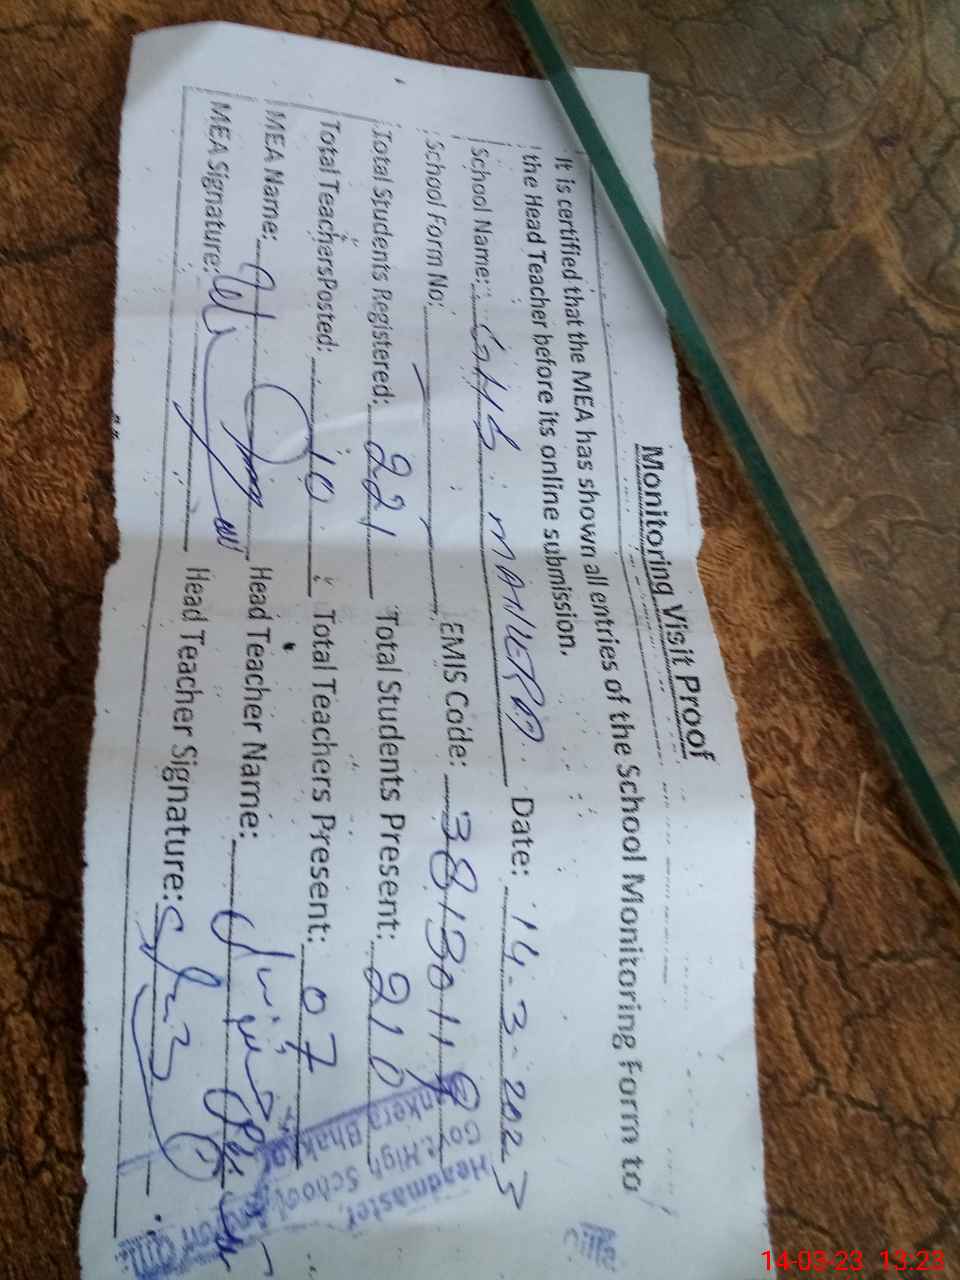 Monitoring Visit Proof
It is certified that the MEA has shown all entries of the School Monitoring Form to
the Head Teacher before its online submission.
School Name: GHS MANKERA Date: 14-3-2023
School Form No: EMIS Code:
Total Students Registered: 221 Total Students Present: 210
Total Teachers Posted: 10 Total Teachers Present: 07
MEA Name: Head Teacher Name:
MEA Signature: Head Teacher Signature:
Headmaster
Govt. High School
Mankera Bhakkar
14-03-23 13:23